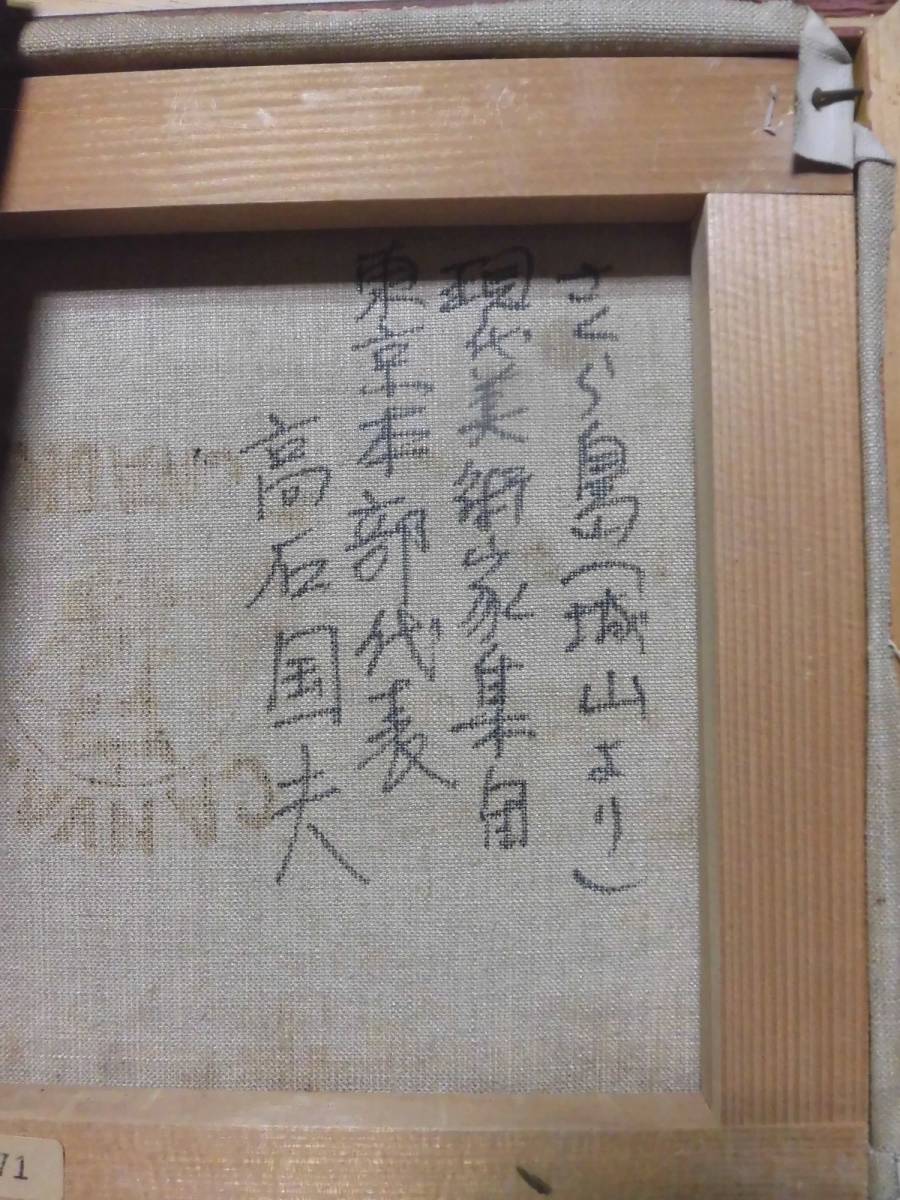 さくら島(城山より)
現代美術家集団
東京本部代表
高石国夫
CANVAS
71